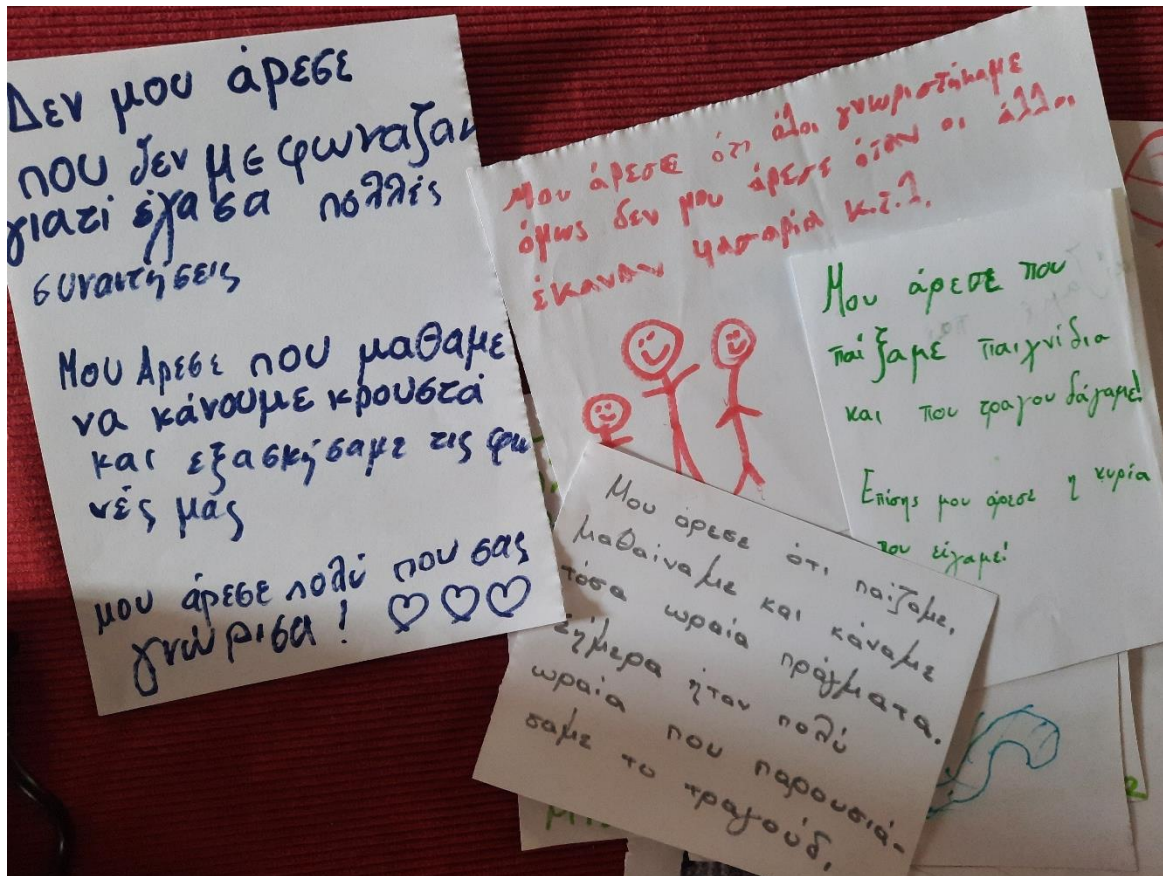 Δεν μου άρεσε
που δεν με φωναζαν
γιατί έχασα πολλές
συναντήσεις
Μου Αρεσε που μαθαμε
να κάνουμε κρουστά
και εξασκήσαμε τις φω
νές μας
μου άρεσε πολύ που σας
γνώρισα! ♡♡♡
Μου άρεσε ότι όλοι γνωριστήκαμε
όμως δεν μου άρεσε όταν οι άλλοι
έκαναν φασαρία κ.τ.λ.
Μου άρεσε που
παίξαμε παιχνίδια
και που τραγουδάγαμε!
Επίσης μου άρεσε η κυρία
που είχαμε!
Μου άρεσε ότι παίζαμε,
μαθαίναμε και κάναμε
τόσα ωραία πράγματα.
Σήμερα ήταν πολύ
ωραία που παρουσιά-
σαμε το τραγούδι